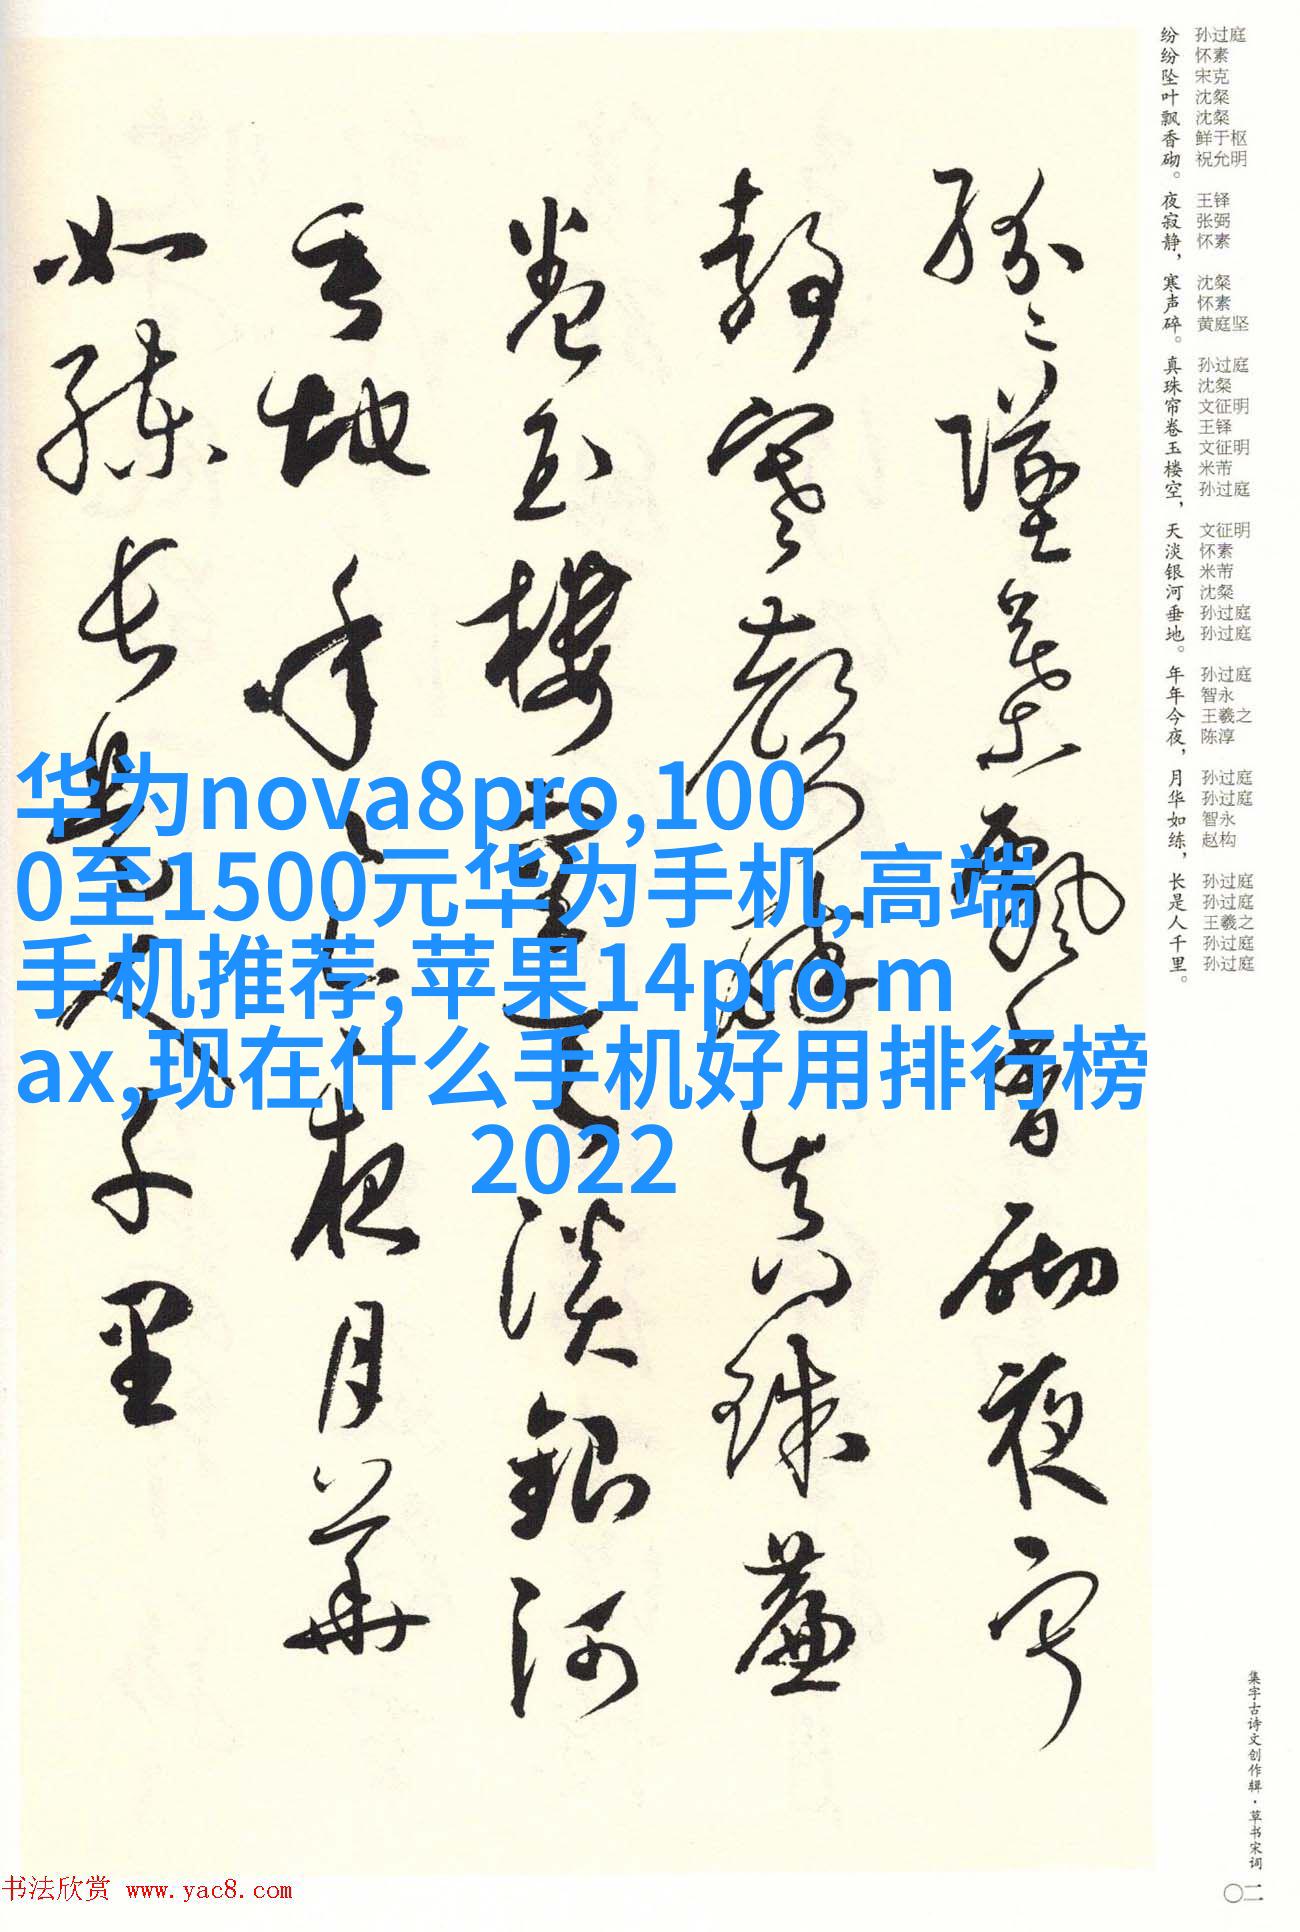 纷纷坠叶飘香砌。夜寂静，寒声碎。真珠帘卷玉楼空，天淡银河垂地。年年今夜，月华如练，长是人千里。
孙过庭
怀素
宋克
沈粲
沈粲
鲜于枢
祝允明
王铎
张弼
怀素
沈粲
怀素
黄庭坚
孙过庭
沈粲
文征明
王铎
文征明
米芾
孙过庭
文征明
怀素
米芾
沈粲
孙过庭
孙过庭
孙过庭
智永
王羲之
陈淳
孙过庭
孙过庭
智永
赵构
孙过庭
孙过庭
王羲之
孙过庭
孙过庭
纷〻坠叶飘香砌夜寂
静寒声碎真珠帘
卷玉楼空天淡银河
垂地年〻今夜月华
如练长是人千里
华为nova8pro,100
0至1500元华为手机,高端
手机推荐,苹果14pro m
ax,现在什么手机好用排行榜
2022
集字古诗文创作辑·草书宋词
〇二
书法欣赏 www.yac8.com